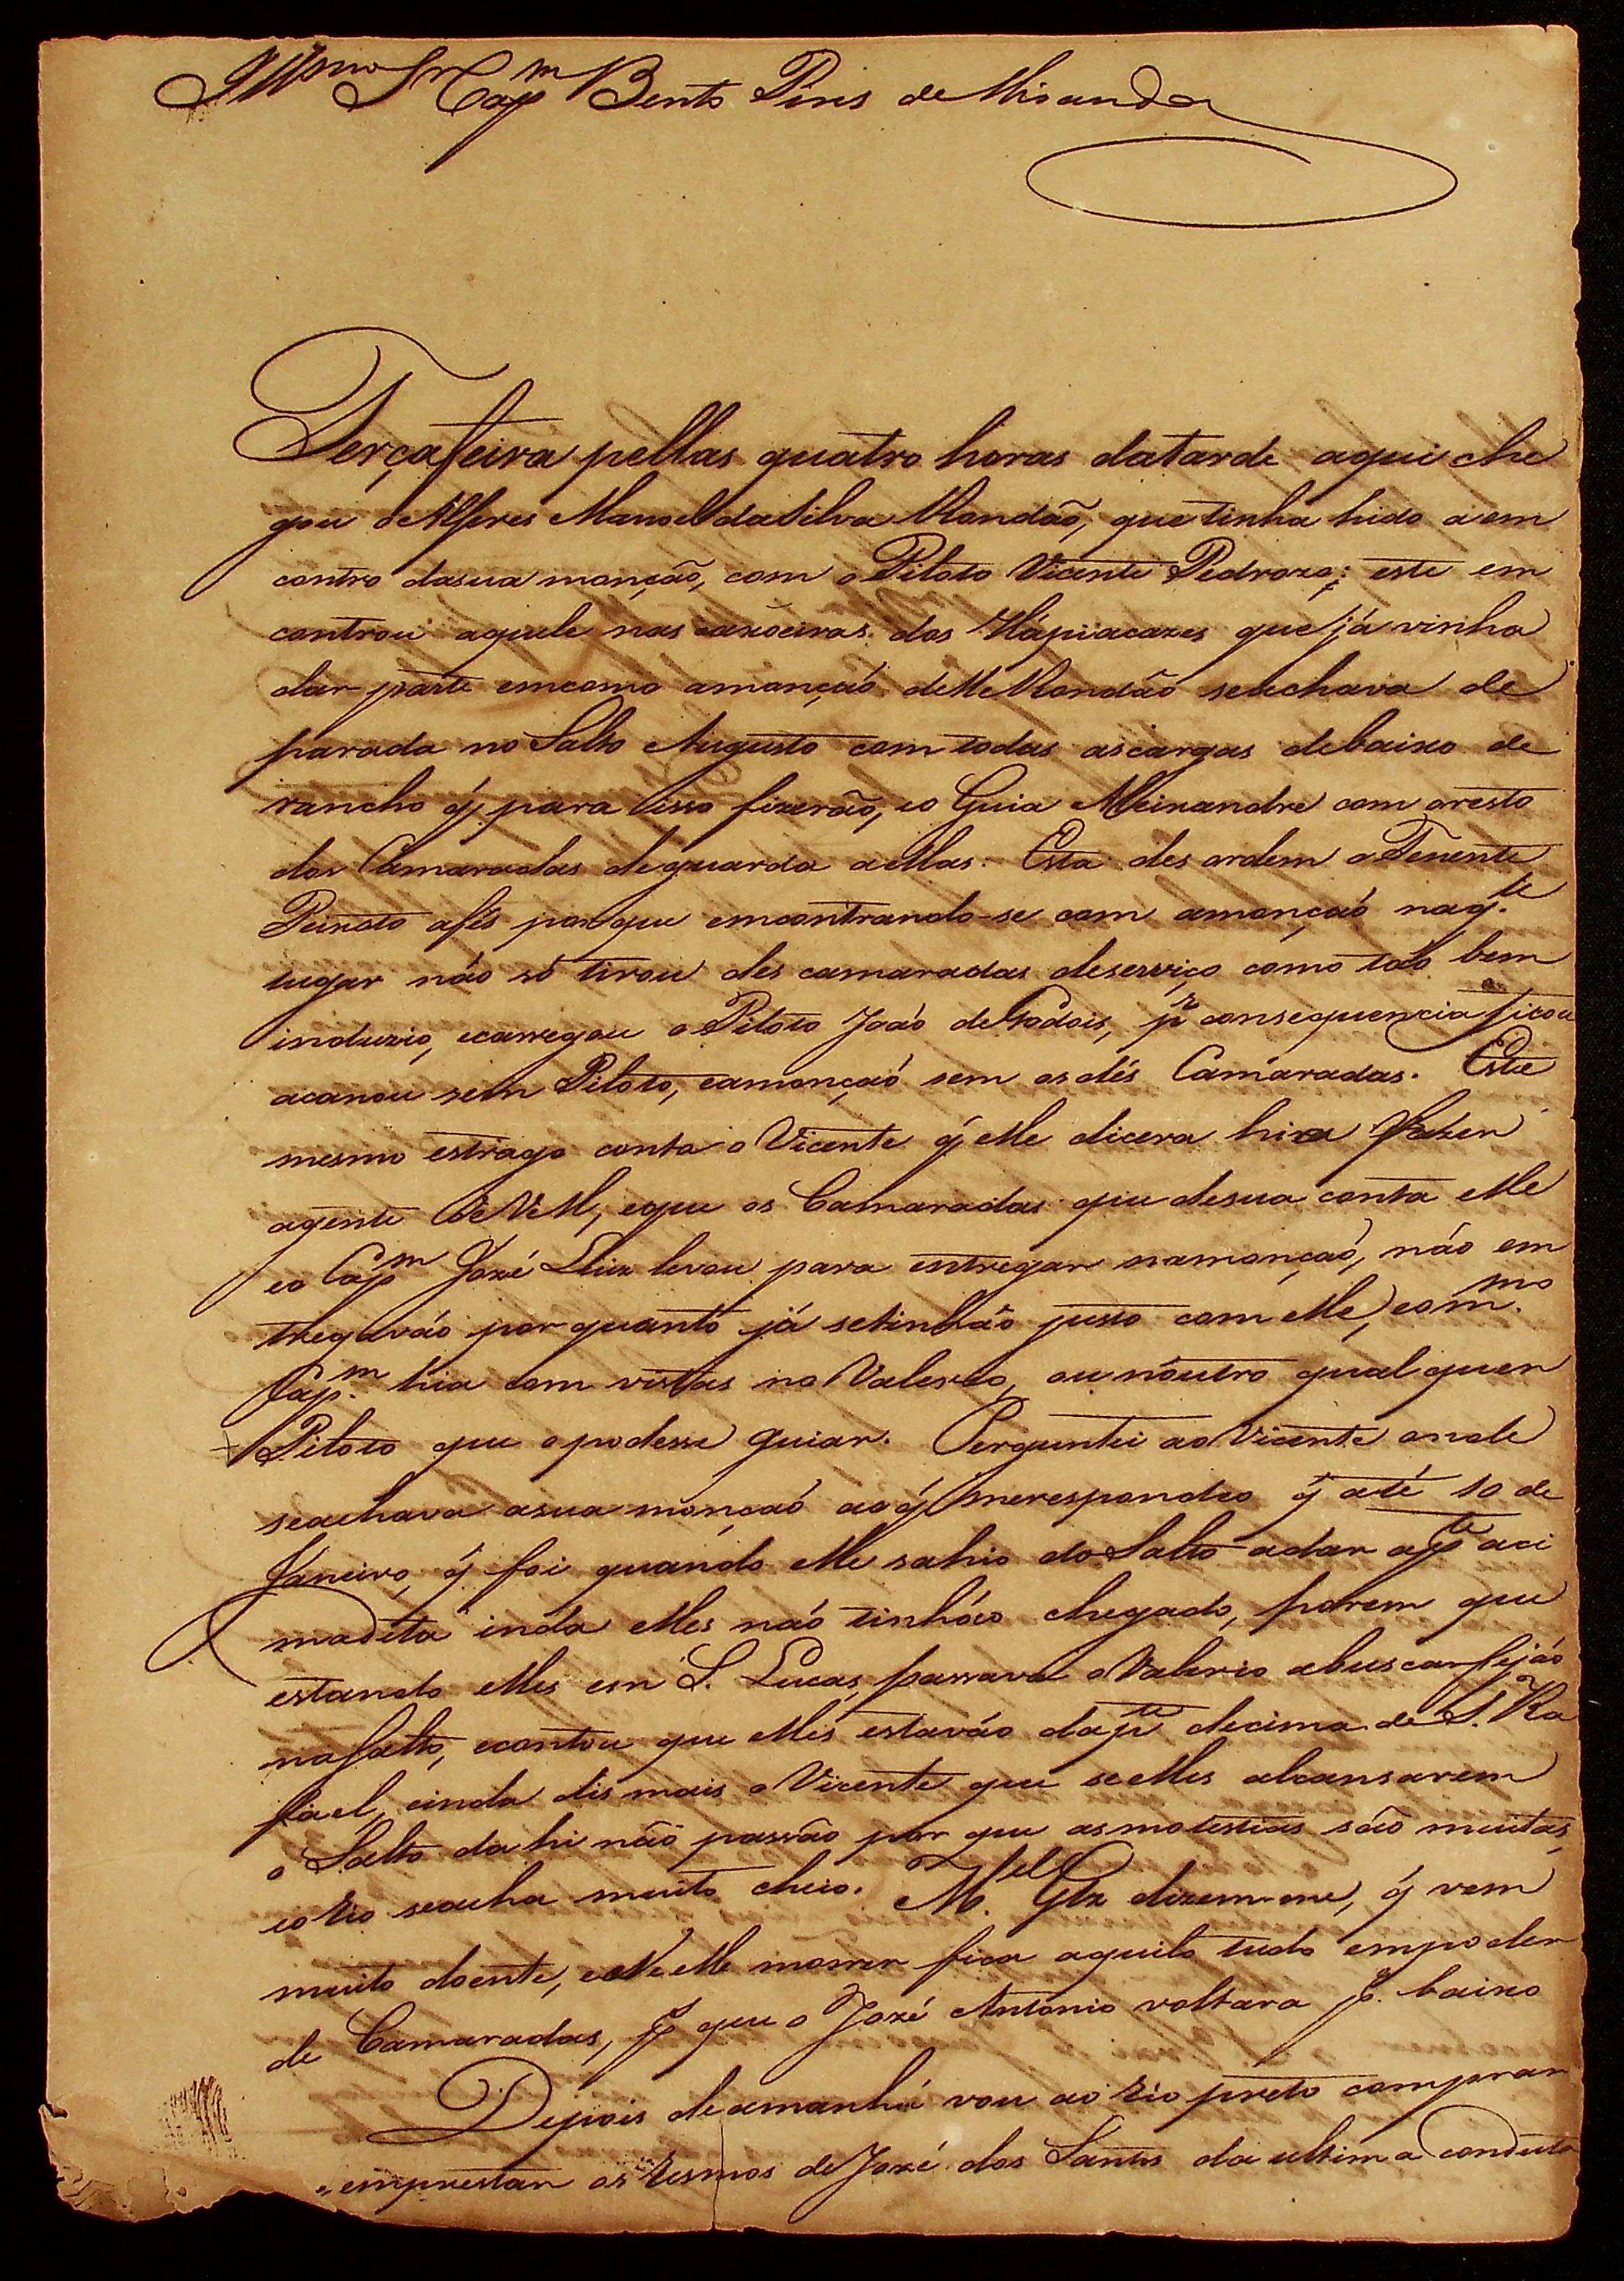 Illmo Sr Capm Bento Pires de Miranda
Terçafeira pellas quatro horas datarde aqui che
gou o Alferes Manoel daSilva Rondão, que tinha hido a em
contro dasua monção, com o Piloto Vicente Pedrozo; este em
controu aquele nas caxoeiras dos Hápiacazes que já vinha
dar parte emcomo amonçaó delle Rondão seachava de
parada no Salto Augusto com todas ascargas debaixo de
rancho q̃ para isso fizerão, eo Guia Aleixandre com oresto
dos Camaradas deguarda aellas. Esta des ordem o Tenente
Peixoto afés porque emcontrando-se com amonçaó naq.le
lugar não só tirou des camaradas deserviço como taõ bem
induzio, ecarregou o Piloto Joaõ deGodois, pr consequencia ficou
acanou sem Piloto, eamonçaó sem os dés Camáradas. Este
mesmo estrago conta o Vicente q̃ elle dicera hira fazer
agente de VM, eque os Camaradas que desua conta elle
eo Capm Jozé Luiz levou para entregar namonçaõ, não em
tregavão por quanto já setinhão justo com elle, eo m.mo
Cap.m hia com vistas no Valerio, ou nóutro qual quer
Piloto que opodesse guiar. Perguntei ao Vicente onde
seachava asua monçaó ao q̃ merespondeo q̃ até 10 de
Janeiro, q̃ foi quando elle sahio do Salto adar apte aci
madita inda elles naó tinhão chegado, porem que
estando elles em S. Lucas, passava o Valerio abuscar fijão
noSalto, econtou que elles estavão dapte decima de S. Ra
fael, einda dis mais o Vicente que seelles alcansarem
o Salto dahi não passão por que asmolestias são muitas,
eo rio seacha muito cheio. M.el Glz dizem-me, q̃ vem
muito doente, eseelle morrer fica aquilo tudo empoder
de Camaradas, pr que o Jozé Antonio voltara pr baixo
Depois deamanhã vou ao rio preto comprar
emprestar os resmos de Jozé dos Santos da ultima conduta